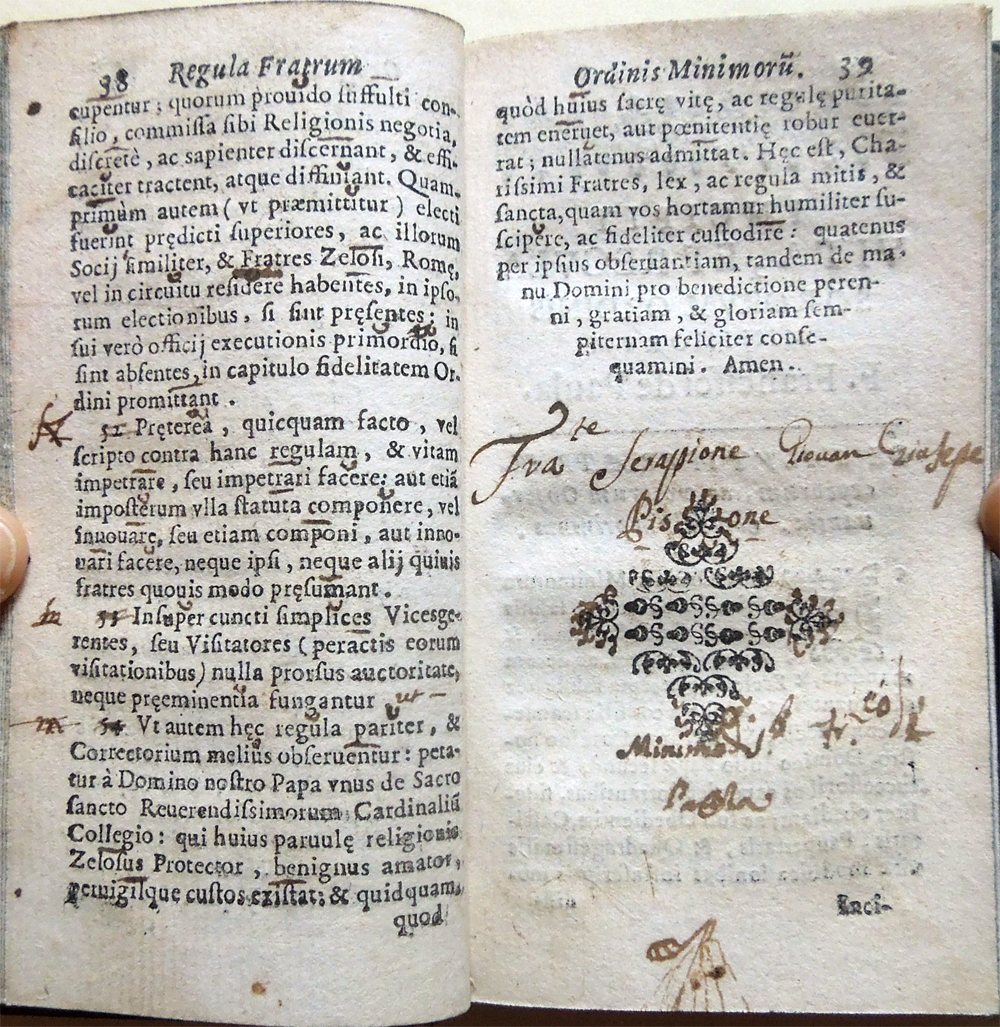 38 Regula Fratrum
cupentur; quorum prouido suffulti con-
silio, commissa sibi Religionis negotia,
discretè, ac sapienter discernant, & effi-
caciter tractent, atque diffiniant. Quam-
primùm autem (vt præmittitur) electi
fuerint prędicti superiores, ac illorum
Socij similiter, & Fratres Zelosi, Romę,
vel in circuitu residere habentes, in ipso-
rum electionibus, si sint pręsentes: in
sui verò officij executionis primordio, si
sint absentes, in capitulo fidelitatem Or-
dini promittant.
52 Pręterea, quicquam facto, vel
scripto contra hanc regulam, & vitam
impetrare, seu impetrari facere: aut etiã
imposterum vlla statuta componere, vel
innouare, seu etiam componi, aut inno-
uari facere, neque ipsi, neque alij quiuis
fratres quouis modo pręsumant.
53 Insuper cuncti simplices Vicesge-
rentes, seu Visitatores (peractis eorum
visitationibus) nulla prorsus auctoritate,
neque pręeminentia fungantur
54 Vt autem hęc regula pariter, &
Correctorium melius obseruentur: peta-
tur à Domino nostro Papa vnus de Sacro
sancto Reuerendissimorum Cardinaliũ
Collegio: qui huius paruulę religionis
Zelosus Protector, benignus amator,
peruigilque custos existat; & quidquam,
quod
Ordinis Minimorũ. 39
quòd huius sacrę vitę, ac regulę purita-
tem eneruet, aut pœnitentię robur euer-
rat; nullatenus admittat. Hęc est, Cha-
rissimi Fratres, lex, ac regula mitis, &
sancta, quam vos hortamur humiliter su-
scipere, ac fideliter custodire: quatenus
per ipsius obseruantiam, tandem de ma-
nu Domini pro benedictione peren-
ni, gratiam, & gloriam sem-
piternam feliciter conse-
quamini. Amen.
Fra Serapione Giouan Giusepe
Minimo
Paola
Inci-